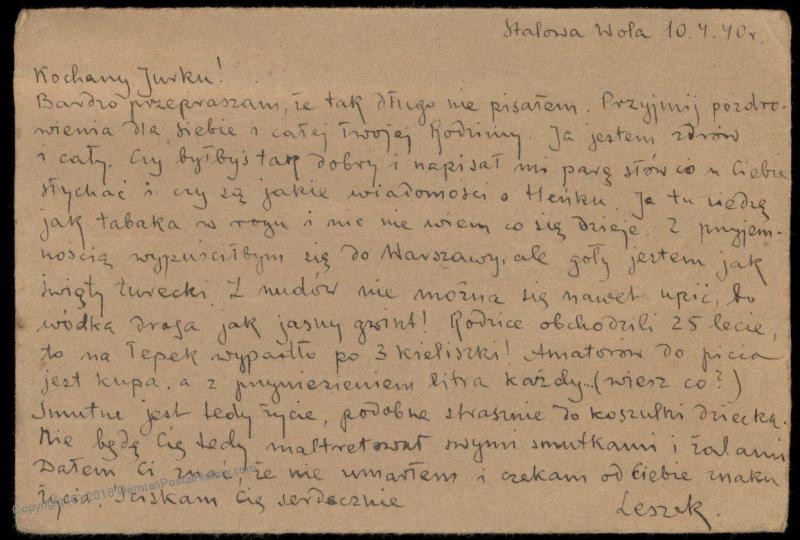 Stalowa Wola 10.4.40r.
Kochany Jurku!
Bardzo przepraszam, że tak długo nie pisałem. Przyjmij pozdro-
wienia dla siebie i całej Twojej Rodziny. Ja jestem zdrów
i cały. Czy byłbyś tak dobry i napisał mi parę słów co u Ciebie
słychać i czy są jakie wiadomości o Heńku. Ja tu siedzę
jak tabaka w rogu i nic nie wiem co się dzieje. Z przyjem-
nością wypuściłbym się do Warszawy, ale goły jestem jak
święty turecki. Z nudów nie można się nawet upić, bo
wódka droga jak jasny gwint! Rodzice obchodzili 25 lecie,
to na łepek wypadło po 3 kieliszki! Amatorów do picia
jest kupa, a z przyniesieniem litra każdy...(wiesz co?)
Smutne jest tedy życie, podobne strasznie do koszulki dziecka.
Nie będę Cię tedy maltretował swymi smutkami i żalami
Dałem Ci znać, że nie umarłem i czekam od Ciebie znaku
życia. Ściskam Cię serdecznie
Leszek.
Copyright (C) 2018 GermanPostalHistory.com